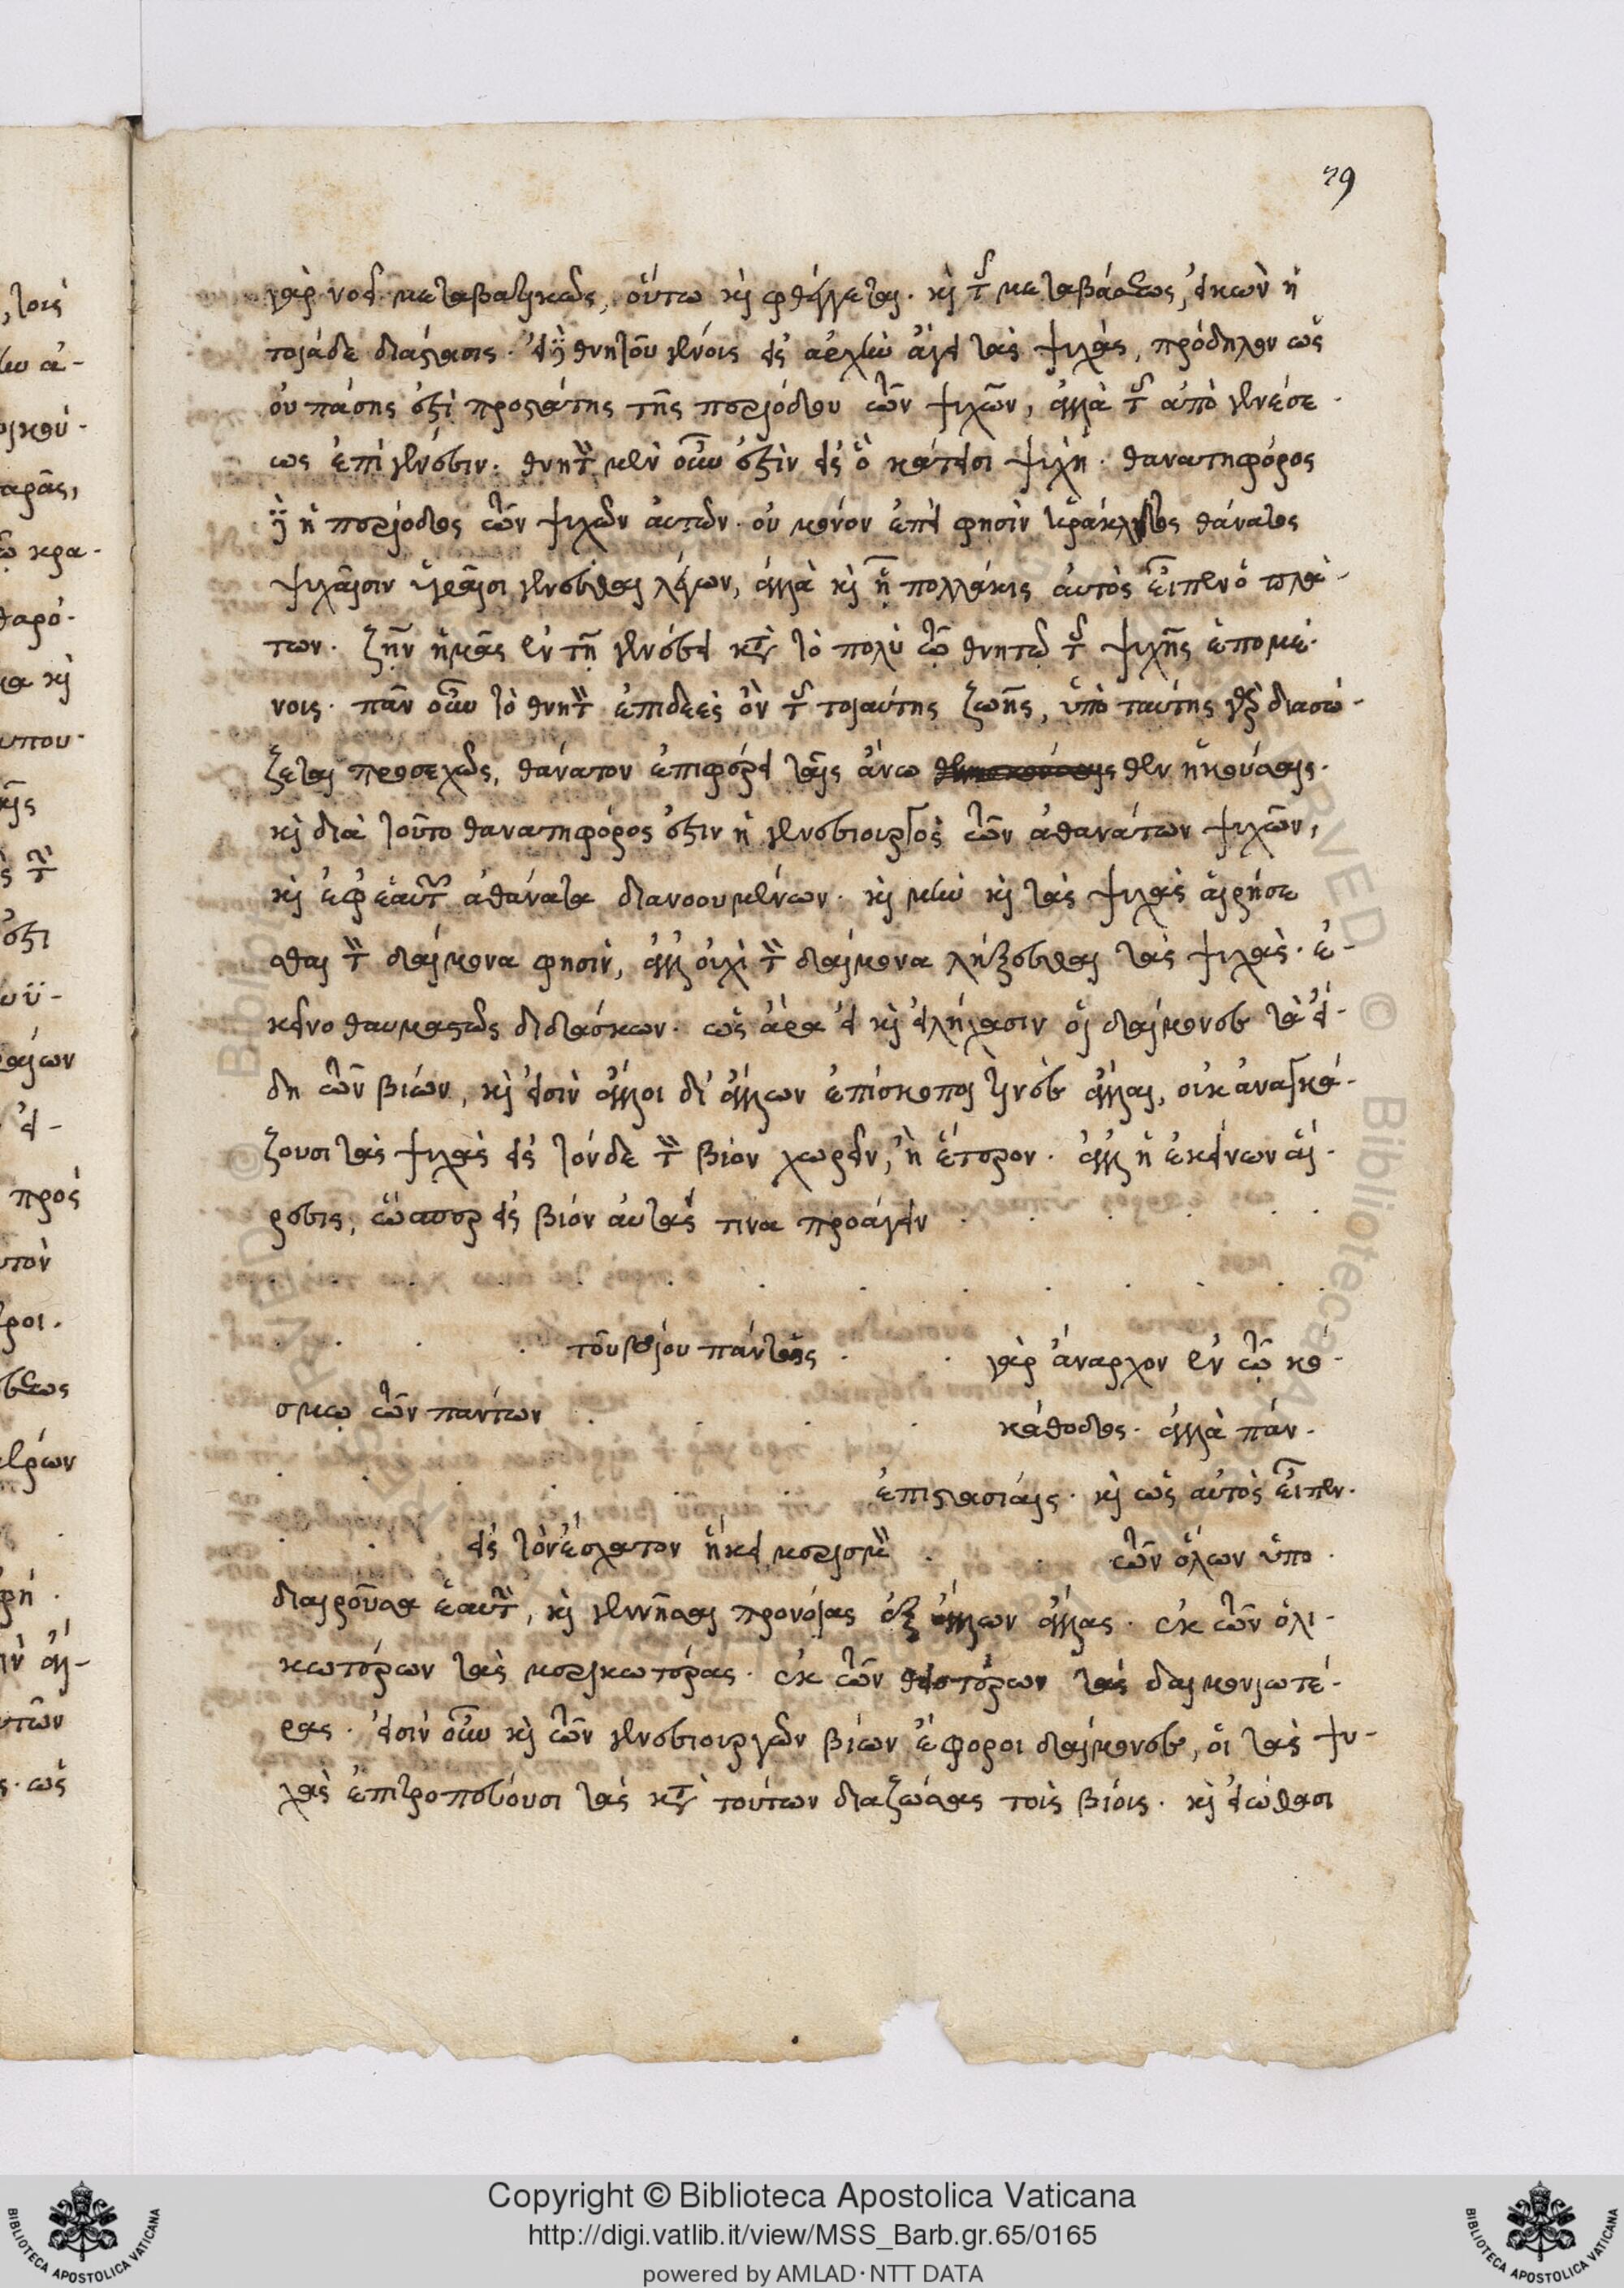 79
γὰρ νοεῖ μεταβατικῶς, οὕτω καὶ φθέγγεται. καὶ τῆς μεταβάσεως, εἰκὼν ἡ
τοιάδε διάστασις. εἰ δὲ θνητοῦ γένοις εἰς ἀρχὴν ἄγει τὰς ψυχὰς, πρόδηλον ὡς
οὐ πάσης ἐστὶ προστάτης τῆς περιόδου τῶν ψυχῶν, ἀλλὰ τῆς ἀπὸ γενέσε
ως ἐπὶ γένεσιν. θνητὸν μὲν οὖν ἐστὶν εἰς ὃ κάτεισι ψυχή. θανατηφόρος
δὲ ἡ περίοδος τῶν ψυχῶν αὐτῶν. οὐ μόνον ἐπεὶ φησὶν Ἡράκλειτος θάνατος
ψυχαῖσιν ὑγραῖσι γενέσθαι λέγων, ἀλλὰ καὶ ᾗ πολλάκις αὐτὸς εἶπεν ὁ πλά-
των. ζῆν ἡμᾶς ἐν τῇ γενέσει κατὰ τὸ πολὺ τῷ θνητῷ τῆς ψυχῆς ἑπομέ-
νοις. πᾶν οὖν τὸ θνητὸν ἐπιδεὲς ὂν τῆς τοιαύτης ζωῆς, ὑπὸ ταύτης γὰρ διασώ-
ζεται προσεχῶς, θάνατον ἐπιφέρει ταῖς ἄνω θεν ἡκούσαις.
καὶ διὰ τοῦτο θανατηφόρος ἐστιν ἡ γενεσιουργὸς τῶν ἀθανάτων ψυχῶν,
καὶ ἐφ ἑαυτὸν ἀθάνατα διανοουμένων. καὶ μὴν καὶ τὰς ψυχὰς αἱρήσε
σθαι τὸν δαίμονα φησὶν, ἀλλ οὐχὶ τὸν δαίμονα λήξεσθαι τὰς ψυχὰς. ἐ-
κεῖνο θαυμαστῶς διδάσκων. ὡς ἄρα εἰ καὶ εἰλήχασιν οἱ δαίμονες τὰ εἴ-
δη τῶν βίων, καὶ εἰσὶν ἄλλοι δι ἄλλων ἐπίσκοποι τινὲς ἄλλαι, οὐκ ἀναγκά-
ζουσι τὰς ψυχὰς εἰς τόνδε τὸν βίον χωρεῖν, ἢ ἕτερον. ἀλλ ἡ ἐκείνων αἵ-
ρεσις, ὥσπερ εἰς βίον αὐτάς τινα προάγειν . . . . .
. . . . . . . . .
. . . τοῦ θείου παντὸς . . γὰρ ἄναρχον ἐν τῷ κό-
σμῳ τῶν πάντων . . . . κάθοδος. ἀλλὰ πάν-
. . . . . . ἐπιστασίαις. καὶ ὡς αὐτὸς εἶπεν.
. . εἰς τὸν ἔσχατον ἥκει μερισμὸν . . τῶν ὅλων ὑπο.
διαιροῦσα ἑαυτὸν, καὶ γεννῆσαι προνοίας ἐξ ἄλλων ἄλλας. ἐκ τῶν ὁλι-
κωτέρων τὰς μερικωτέρας. ἐκ τῶν θειοτέρων τὰς δαιμονιωτέ-
ρας. εἰσὶν οὖν καὶ τῶν γενεσιουργῶν βίων ἔφοροι δαίμονες, οἱ τὰς ψυ-
χὰς ἐπιτροπεύουσι τὰς κατὰ τούτων διαζώσας τοῖς βίοις. καὶ εἰώθασι
Copyright © Biblioteca Apostolica Vaticana
http://digi.vatlib.it/view/MSS_Barb.gr.65/0165
powered by AMLAD·NTT DATA
BIBLIOTECA APOSTOLICA VATICANA
BIBLIOTECA APOSTOLICA VATICANA